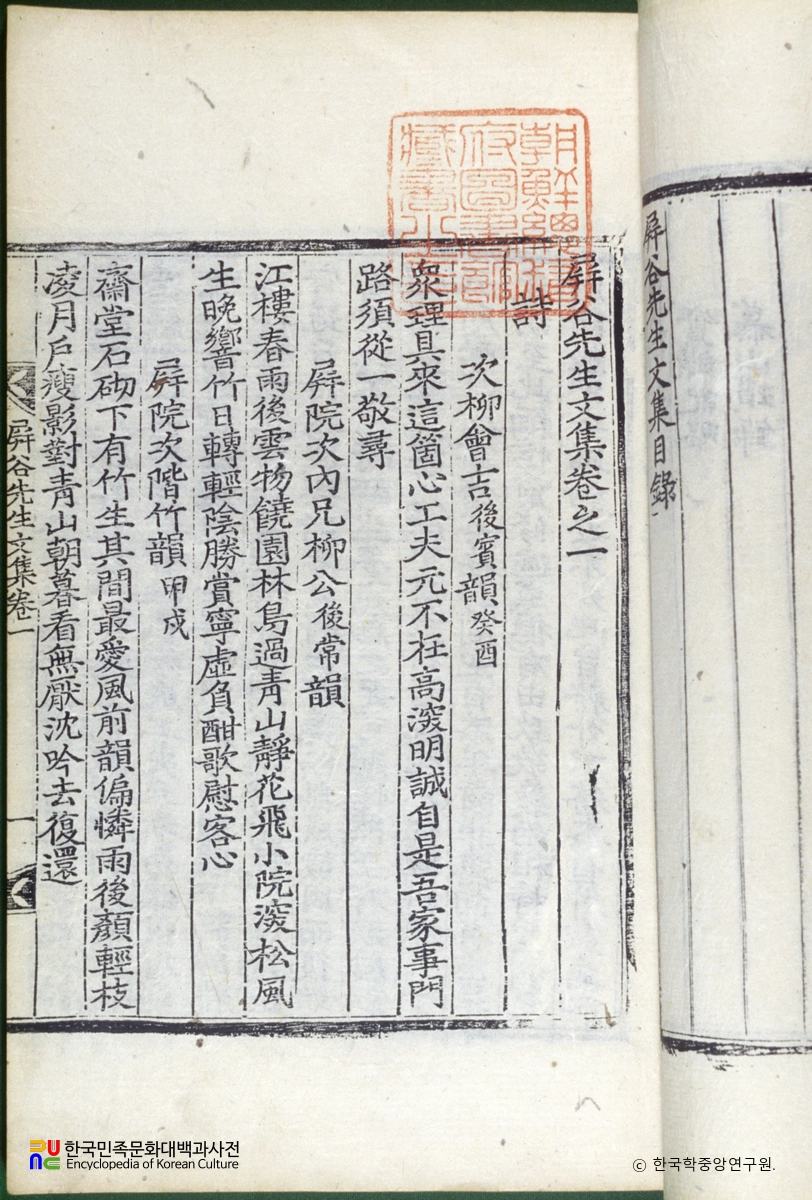 屛谷先生文集目錄
屛谷先生文集卷之一
詩
次柳會吉後賓韻癸酉
衆理具來這箇心工夫元不在高深明誠自是吾家事門
路須從一敬尋
屛院次內兄柳公後常韻
江樓春雨後雲物饒園林鳥過靑山靜花飛小院深松風
生晩響竹日轉輕陰勝賞寧虛負酣歌慰客心
屛院次階竹韻甲戌
齋堂石砌下有竹生其間最愛風前韻偏憐雨後顏輕枝
凌月戶瘦影對靑山朝暮看無厭沈吟去復還
屛谷先生文集卷一
一
朝鮮總
督府圖書
藏書之
한국민족문화대백과사전
Encyclopedia of Korean Culture
ⓒ 한국학중앙연구원.